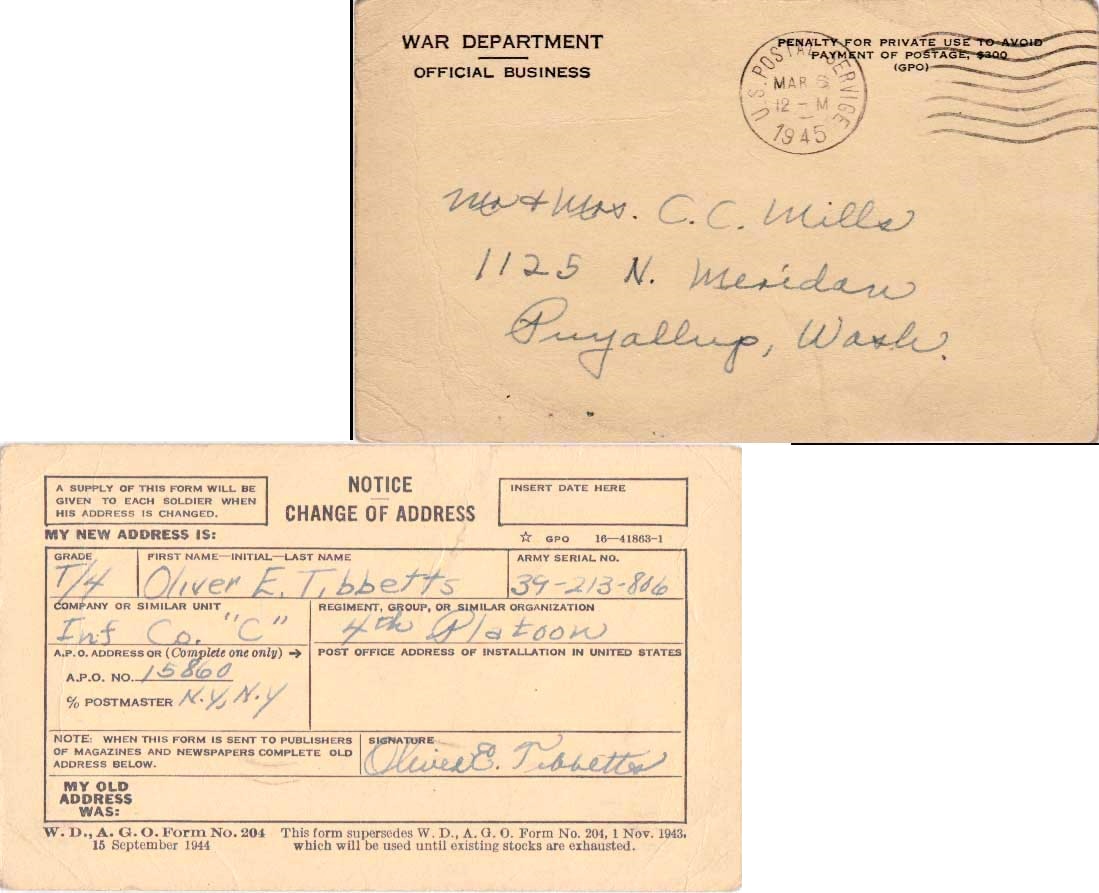 WAR DEPARTMENT
OFFICIAL BUSINESS
PENALTY FOR PRIVATE USE TO AVOID
PAYMENT OF POSTAGE, $300
(GPO)
U.S. POSTAL SERVICE
MAR 6
12 - M
1945
Mr + Mrs. C. C. Mills
1125 N. Meridan
Puyallup, Wash.
A SUPPLY OF THIS FORM WILL BE
GIVEN TO EACH SOLDIER WHEN
HIS ADDRESS IS CHANGED.
NOTICE
CHANGE OF ADDRESS
INSERT DATE HERE
MY NEW ADDRESS IS:
☆ GPO 16—41863-1
GRADE FIRST NAME—INITIAL—LAST NAME ARMY SERIAL NO.
T/4 Oliver E. Tibbetts 39-213-806
COMPANY OR SIMILAR UNIT REGIMENT, GROUP, OR SIMILAR ORGANIZATION
Inf Co. "C" 4th Platoon
A.P.O. ADDRESS OR (Complete one only) → POST OFFICE ADDRESS OF INSTALLATION IN UNITED STATES
A.P.O. NO. 15860
℅ POSTMASTER N.Y., N.Y
NOTE: WHEN THIS FORM IS SENT TO PUBLISHERS
OF MAGAZINES AND NEWSPAPERS COMPLETE OLD
ADDRESS BELOW.
SIGNATURE
Oliver E. Tibbetts
MY OLD
ADDRESS
WAS:
W. D., A. G. O. Form No. 204
15 September 1944
This form supersedes W. D., A. G. O. Form No. 204, 1 Nov. 1943,
which will be used until existing stocks are exhausted.